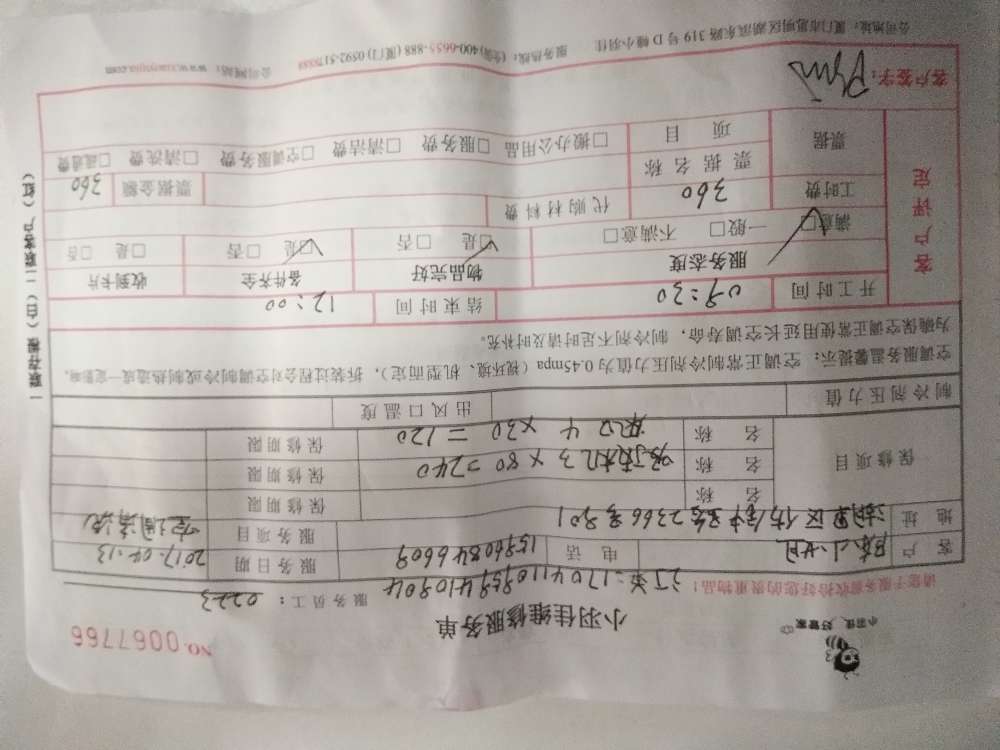 小羽佳，好管家
NO. 0067766
小羽佳维修服务单
请您于服务前收拾好您的贵重物品！
服务员工：0223
客户 陈小姐 电话 15960846609 服务日期 2017.04.13
地址 湖里区 2366号901 服务项目 空调清洗
保修项目
名称 保修期限
名称 吸顶机3×80=240 保修期限
名称 4×30=120 保修期限
制冷剂压力值 出风口温度
空调服务温馨提示：空调正常制冷剂压力值为0.45mpa（视环境、机型而定），拆装过程会对空调制冷或制热造成一定影响，
为确保空调正常使用延长空调寿命，制冷剂不足时请及时补充。
开工时间 09:30 结束时间 12:00
客户评定
服务态度 物品完好 备件齐全 收到卡片
满意□ 一般□ 不满意□ □是 □否 □是 □否 □是 □否
工时费 360 代购材料费 票据金额 360
票据 票据名称
项目 □搬办公用品 □服务费 □清洁费 □空调服务费 □清洗费 □疏通费
客户签字：
公司地址：厦门市思明区湖滨东路319号D幢小羽佳 服务热线：(全国)400-0655-888 (厦门)0592-5178888 公司网站：www.xiaoyujia.com
一联存根（白）二联客户（红）